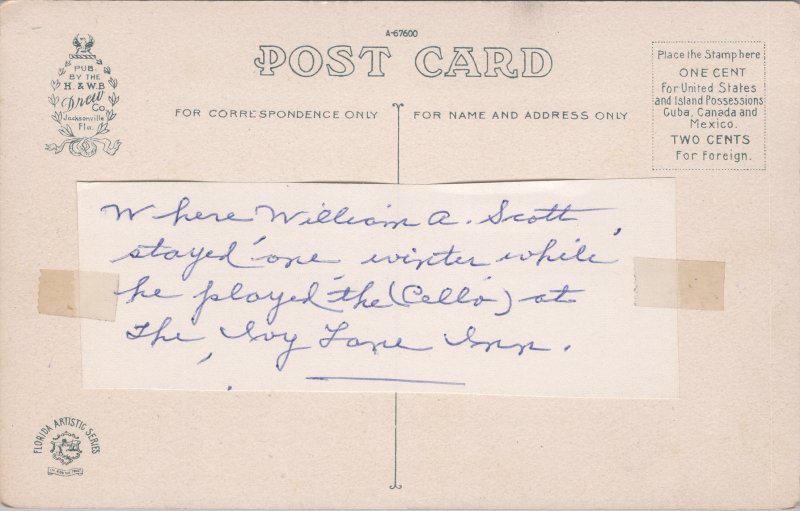 A-67600
POST CARD
PUB.
BY THE
H. & W.B.
Drew
Co.
Jacksonville
Fla.
Place the Stamp here
ONE CENT
For United States
and Island Possessions
Cuba, Canada and
Mexico.
TWO CENTS
For Foreign.
FOR CORRESPONDENCE ONLY
FOR NAME AND ADDRESS ONLY
Where William A. Scott
stayed one winter while
he played the (Cello) at
The Ivy Lane Inn.
FLORIDA ARTISTIC SERIES